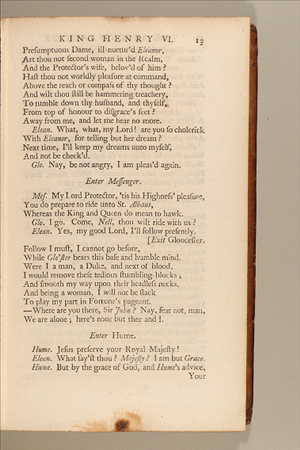 KING HENRY VI. 13
Presumptuous Dame, ill-nurtur'd Eleanor,
Art thou not second woman in the Realm,
And the Protector's wife, belov'd of him?
Hast thou not worldly pleasure at command,
Above the reach or compass of thy thought?
And wilt thou still be hammering treachery,
To tumble down thy husband, and thyself,
From top of honour to disgrace's feet?
Away from me, and let me hear no more.
Elean. What, what, my Lord! are you so cholerick
With Eleanor, for telling but her dream?
Next time, I'll keep my dreams unto myself,
And not be check'd.
Glo. Nay, be not angry, I am pleas'd again.
Enter Messenger.
Mes. My Lord Protector, 'tis his Highness' pleasure,
You do prepare to ride unto St. Albans,
Whereas the King and Queen do mean to hawk.
Glo. I go. Come, Nell, thou wilt ride with us?
Elean. Yes, my good Lord, I'll follow presently.
[Exit Gloucester.
Follow I must, I cannot go before,
While Glo'ster bears this base and humble mind.
Were I a man, a Duke, and next of blood,
I would remove these tedious stumbling-blocks;
And smooth my way upon their headless necks.
And being a woman, I will not be slack
To play my part in Fortune's pageant.
—Where are you there, Sir John? Nay, fear not, man,
We are alone; here's none but thee and I.
Enter Hume.
Hume. Jesus preserve your Royal Majesty!
Elean. What say'st thou? Majesty? I am but Grace.
Hume. But by the grace of God, and Hume's advice,
Your